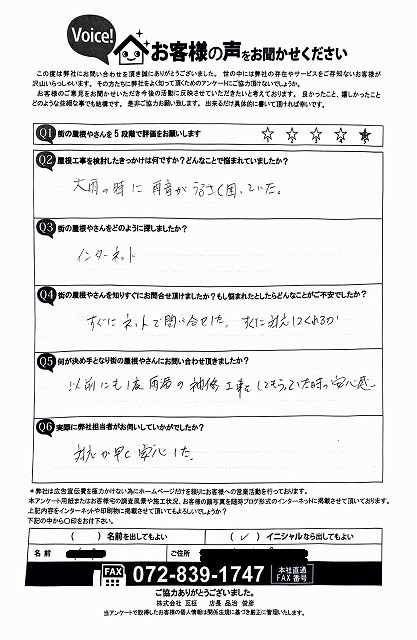 Voice!
お客様の声をお聞かせください
この度は弊社にお問い合わせを頂き誠にありがとうございました。 世の中には弊社の存在やサービスをご存知ないお客様が
沢山いらっしゃいます。 その方たちに弊社をよく知って頂くためのアンケートにご協力頂けないでしょうか。
お客様のご意見をお聞かせいただき今後の活動に反映させていただきたいと考えております。 良かったこと、嬉しかったこと
どのような些細な事でも結構です。 是非ご協力お願い致します。 出来るだけ具体的に書いて頂ければ幸いです。
Q1 街の屋根やさんを5段階で評価をお願いします ☆ ☆ ☆ ☆ ★
Q2 屋根工事を検討したきっかけは何ですか？どんなことで悩まれていましたか？
大雨の時に雨音がうるさく困っていた。
Q3 街の屋根やさんをどのように探しましたか？
インターネット
Q4 街の屋根やさんを知りすぐにお問合せ頂けましたか？もし悩まれたとしたらどんなことがご不安でしたか？
すぐにネットで問い合せした。 すぐに対応してくれるか
Q5 何が決め手となり街の屋根やさんにお問い合わせ頂きましたか？
以前にも1度雨漏の補修工事をしてもらっていた時の安心感
Q6 実際に弊社担当者がお伺いしていかがでしたか？
対応が早く安心した。
＊弊社は広告宣伝費を極力かけない為にホームページだけを頼りにお客様への営業活動を行っております。
本アンケート用紙またはお客様宅の調査風景や施工状況、お客様の顔写真を随時ブログ形式のインターネットに掲載させて頂いております。
上記内容をインターネットや印刷物に掲載させて頂いてもよろしいでしょうか？
下記の中から〇印をお付下さい。
（　）名前を出してもよい （✓）イニシャルなら出してもよい
名 前 ご住所
FAX 072-839-1747 本社直通 FAX番号
ご協力ありがとうございました。
株式会社 瓦柾 店長 品治 俊彦
当アンケートで取得したお客様の個人情報は関係法規に基づき厳正に管理いたします。